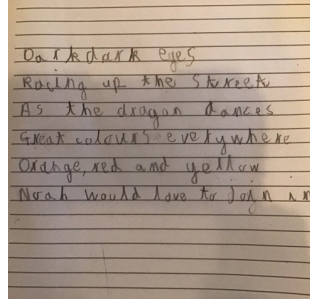 Dark dark eyes
Racing up the street
As the dragon dances
Great colours everywhere
Orange, red and yellow
Noah would love to join in